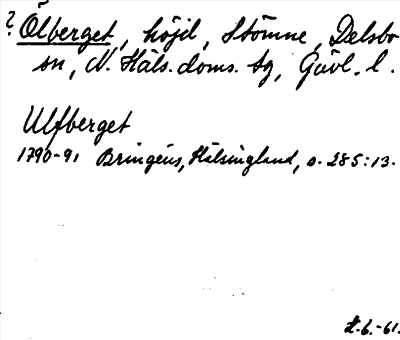 ? Ölberget, höjd, Stömne, Delsbo
sn, N. Häls. doms. sg, Gävl. l.
Ulfberget
1790-91 Bringéus, Hälsingland, s. 285:13.
6.-61.